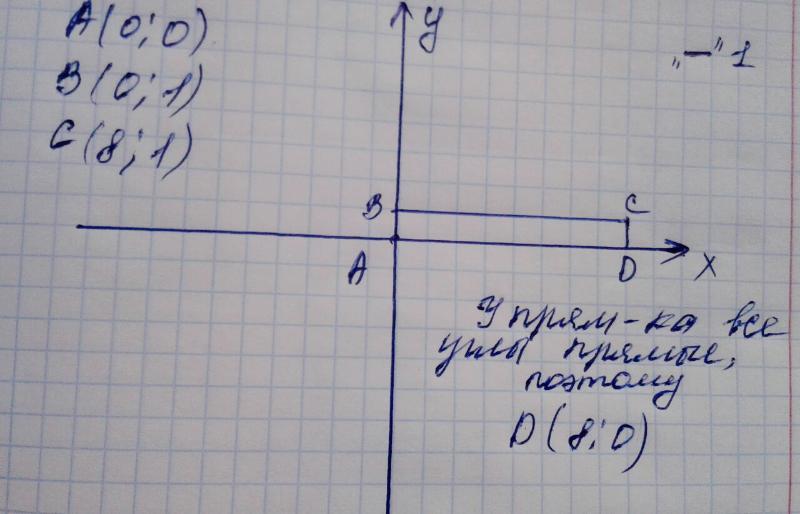 A(0;0)
B(0;1)
C(8;1)
y
„—" 1
B
C
A
D
X
У прям-ка все
углы прямые,
поэтому
D(8;0)